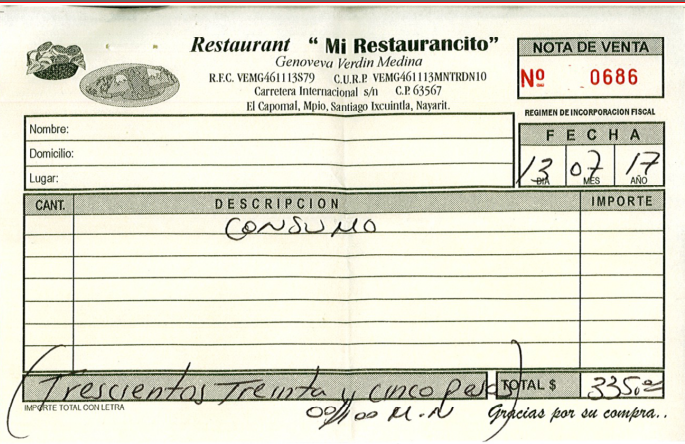 Restaurant “ Mi Restaurancito”
Genoveva Verdin Medina
R.F.C. VEMG461113S79 C.U.R.P VEMG461113MNTRDN10
Carretera Internacional s/n C.P. 63567
El Capomal, Mpio, Santiago Ixcuintla, Nayarit.
NOTA DE VENTA
Nº 0686
REGIMEN DE INCORPORACION FISCAL
FECHA
13 07 17
DIA MES AÑO
Nombre:
Domicilio:
Lugar:
CANT. DESCRIPCION IMPORTE
CONSUMO
(Trescientos Treinta y cinco pesos)
TOTAL $ 335.00
00/100 M.N
IMPORTE TOTAL CON LETRA
Gracias por su compra..